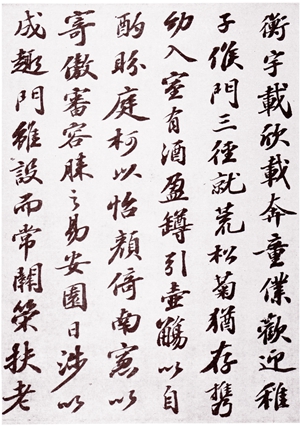 衡宇載欣載奔童僕歡迎稚
子候門三徑就荒松菊猶存攜
幼入室有酒盈罇引壺觴以自
酌眄庭柯以怡顏倚南窗以
寄傲審容膝之易安園日涉以
成趣門雖設而常關策扶老